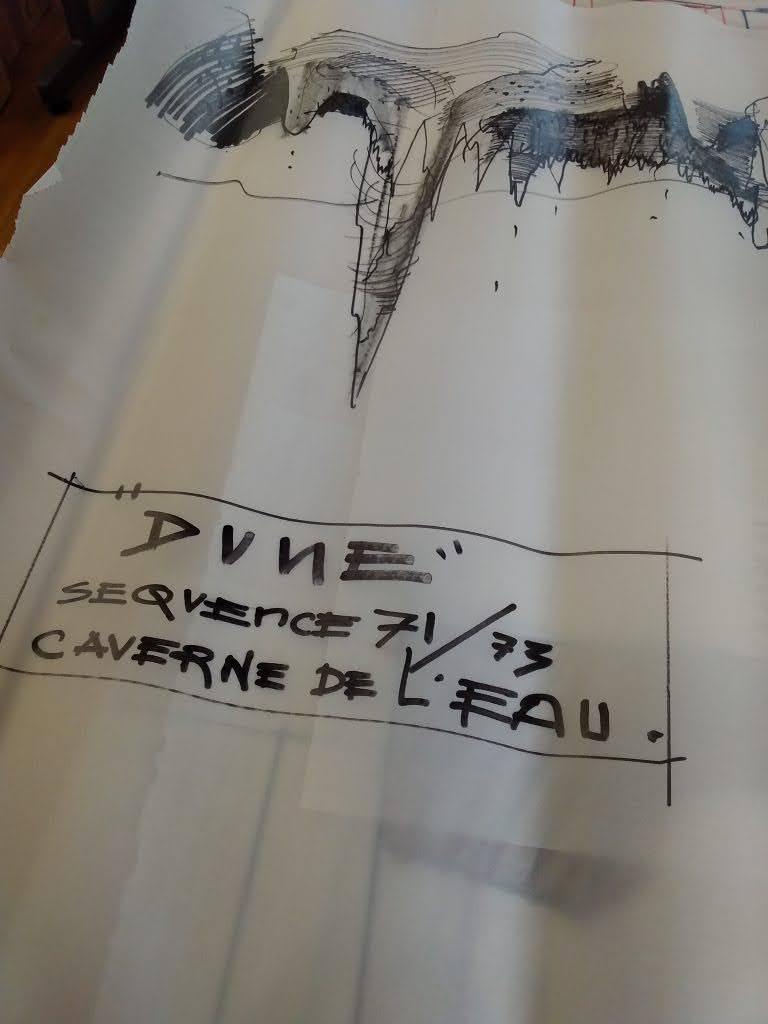 "DUNE"
SEQUENCE 71/73
CAVERNE DE L'EAU.